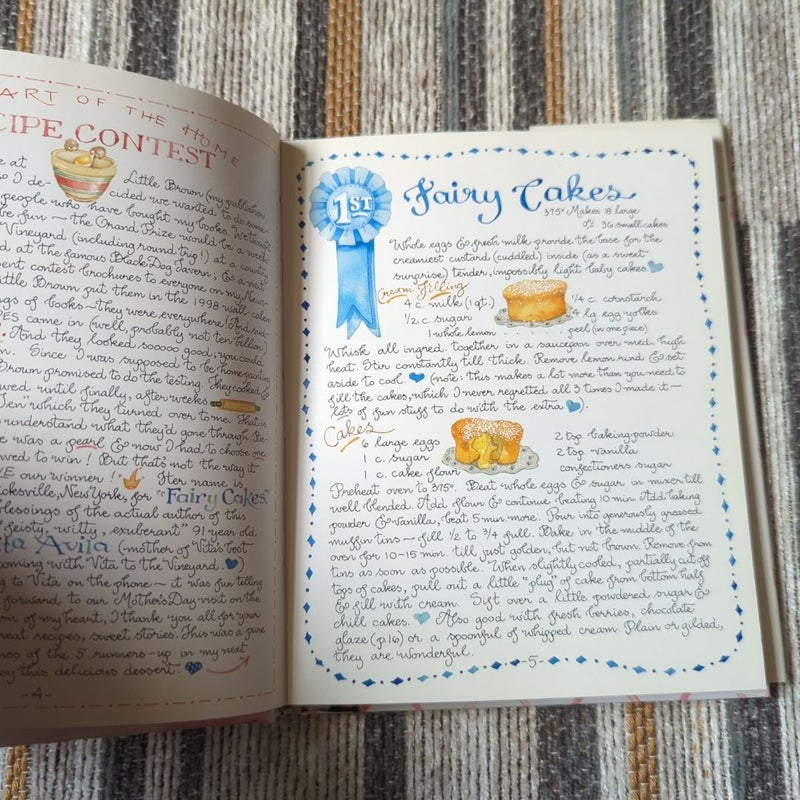 ART OF THE HOME
CIPE CONTEST
e at
Little Brown (my publisher)
I de-
cided we wanted to do some
people who have bought my books. We thought
be fun — the Grand Prize would be a week
Vineyard (including round trip!) at a country
d at the famous Black Dog Tavern; & a visit
sent contest brochures to everyone on my News-
ittle Brown put them in the 1998 wall calen-
ngs of books—they were everywhere! And sud-
PES came in (well, probably not ten billion,
. And they looked sooooo good; you could
n. Since I was supposed to be home painting
Brown promised to do the testing. They cooked &
wed until finally, after weeks
Ten" which they turned over to me. That is
understand what they'd gone through. Be-
e was a pearl & now I had to choose one
rved to win! But that's not the way it
E our winner! Her name is
icksville, New York, for "Fairy Cakes."
blessings of the actual author of this
feisty, witty, exuberant" 91-year old
ta Avila (mother of Vita's best
coming with Vita to the Vineyard.
g to Vita on the phone — it was fun telling
forward to our Mother's Day visit on the
om of my heart, I thank you all for your
reat recipes, sweet stories. This was a pure
nes of the 5 runners-up in my next
oy this delicious dessert.
-4-
1ST
Fairy Cakes
375° Makes 18 large
or 36 small cakes
Whole eggs & fresh milk provide the base for the
creamiest custard (cuddled) inside (as a sweet
surprise) tender, impossibly light baby cakes
Cream Filling
4 c. milk (1 qt.)
1/4 c. cornstarch
1/2 c. sugar
4 lg. egg yolks
1 whole lemon
peel (in one piece)
Whisk all ingred. together in a saucepan over med. high
heat. Stir constantly till thick. Remove lemon rind & set
aside to cool. (note: this makes a lot more than you need to
fill the cakes, which I never regretted all 3 times I made it—
lots of fun stuff to do with the extra).
Cakes
6 large eggs
2 tsp. baking powder
1 c. sugar
2 tsp. vanilla
1 c. cake flour
confectioners sugar
Preheat oven to 375°. Beat whole eggs & sugar in mixer till
well blended. Add flour & continue beating 10 min. Add baking
powder & vanilla, beat 5 min. more. Pour into generously greased
muffin tins — fill 1/2 to 3/4 full. Bake in the middle of the
oven for 10-15 min. till just golden, but not brown. Remove from
tins as soon as possible. When slightly cooled, partially cut off
tops of cakes, pull out a little "plug" of cake from bottom half
& fill with cream. Sift over a little powdered sugar &
chill cakes. Also good with fresh berries, chocolate
glaze (p.16) or a spoonful of whipped cream. Plain or gilded,
they are wonderful.
-5-